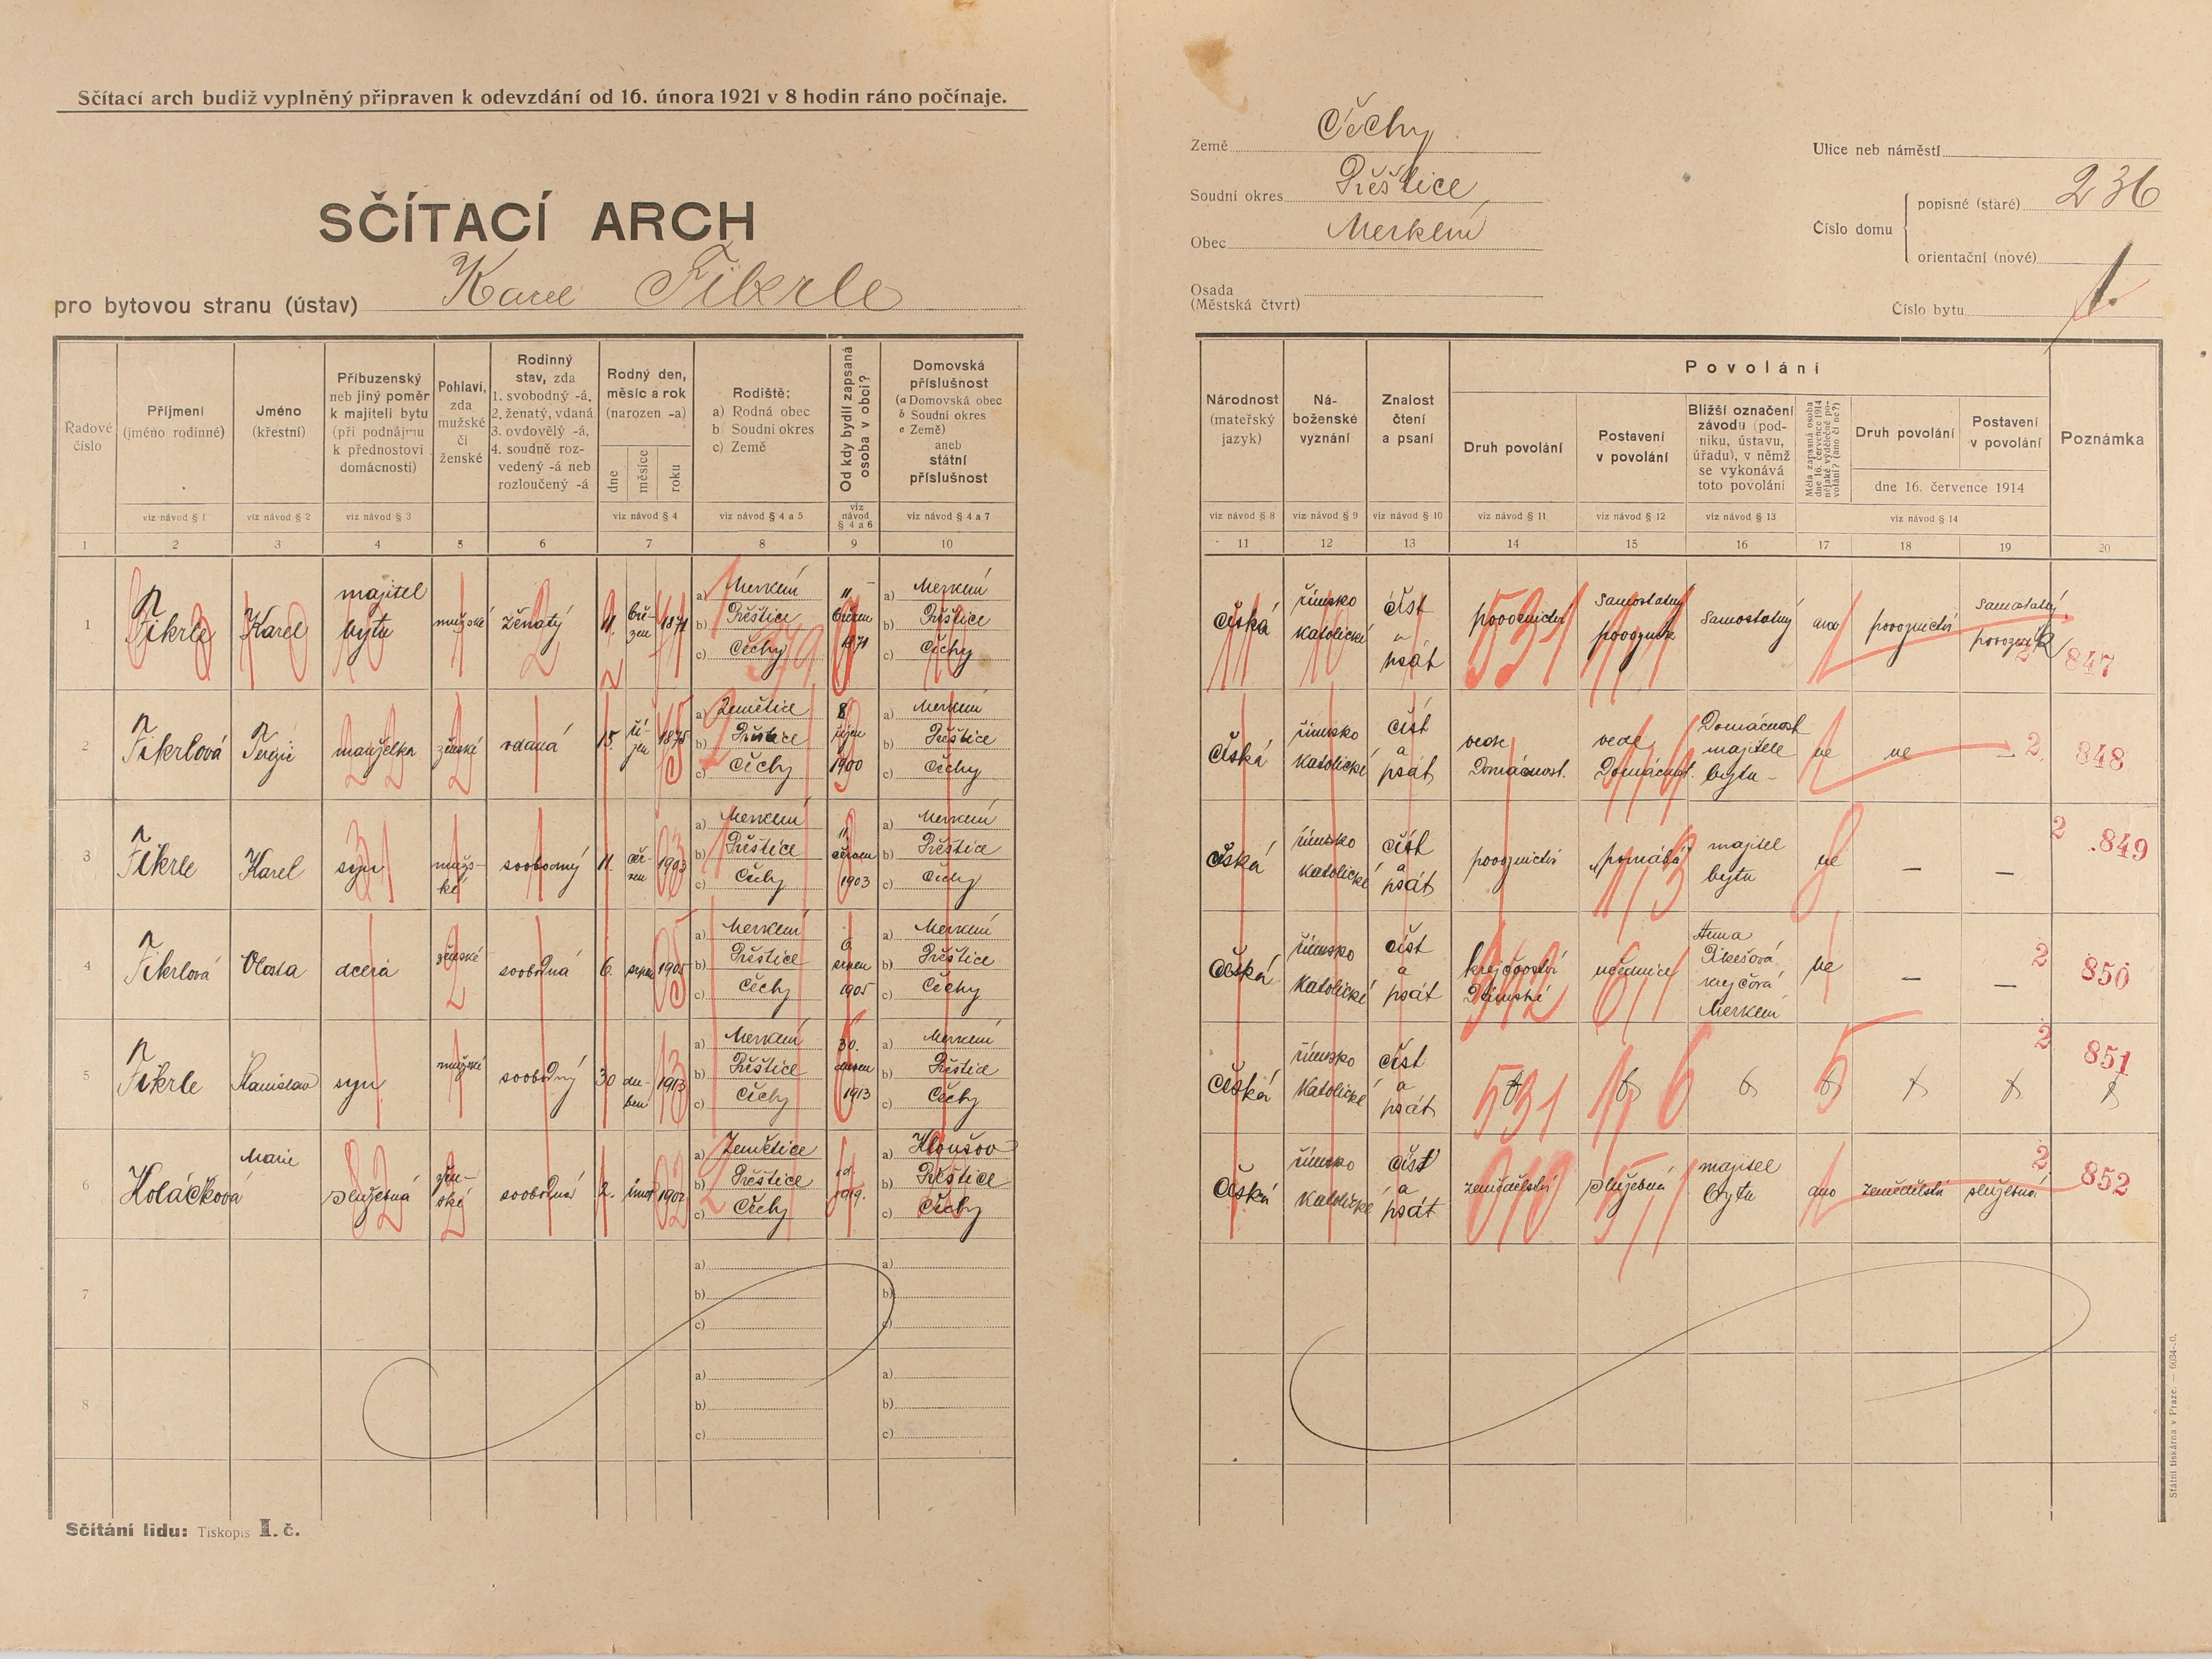 Sčítací arch budiž vyplněný připraven k odevzdání od 16. února 1921 v 8 hodin ráno počínaje.
SČÍTACÍ ARCH
pro bytovou stranu (ústav) Karel Fikrle
Země Čechy
Soudní okres Přeštice
Obec Merklín
Osada
(Městská čtvrt)
Ulice neb náměstí
Číslo domu
popisné (staré) 236
orientační (nové)
Číslo bytu 1.
Řadové číslo
Příjmení (jméno rodinné)
Jméno (křestní)
Příbuzenský neb jiný poměr k majiteli bytu (při podnájmu k přednostovi domácnosti)
Pohlaví, zda mužské či ženské
Rodinný stav, zda 1. svobodný -á, 2. ženatý, vdaná 3. ovdovělý -á, 4. soudně rozvedený -á neb rozloučený -á
Rodný den, měsíc a rok (narozen -a)
dne měsíce roku
Rodiště: a) Rodná obec b) Soudní okres c) Země
Od kdy bydlí zapsaná osoba v obci?
Domovská příslušnost (a Domovská obec b Soudní okres c Země) aneb státní příslušnost
Národnost (mateřský jazyk)
Náboženské vyznání
Znalost čtení a psaní
Povolání
Druh povolání
Postavení v povolání
Bližší označení závodu (podniku, ústavu, úřadu), v němž se vykonává toto povolání
Měla zapsaná osoba dne 16. července 1914 nějaké výdělečné povolání? (ano či ne?)
Druh povolání
Postavení v povolání
dne 16. července 1914
Poznámka
viz návod § 1 viz návod § 2 viz návod § 3 viz návod § 4 viz návod § 4 a 5 viz návod § 4 a 6 viz návod § 4 a 7
viz návod § 8 viz návod § 9 viz návod § 10 viz návod § 11 viz návod § 12 viz návod § 13 viz návod § 14
1 2 3 4 5 6 7 8 9 10 11 12 13 14 15 16 17 18 19 20
1 Fikrle Karel majitel bytu mužské ženatý 11. březen 1871
a) Merklín b) Přeštice c) Čechy
11 březen 1871
a) Merklín b) Přeštice c) Čechy
česká římsko katolické číst a psát povoznictví samostatný povozník samostatný ano povoznictví samostatný povozník 847
2 Fikrlová Terezie manželka ženské vdaná 15. říjen 1875
a) Zemětice b) Přeštice c) Čechy
8 říjen 1900
a) Merklín b) Přeštice c) Čechy
česká římsko katolické číst a psát vede Domácnost. vede Domácnost. Domácnost majitele bytu ne ne — 2 848
3 Fikrle Karel syn mužské svobodný 11. 1903
a) Merklín b) Přeštice c) Čechy
11 1903
a) Merklín b) Přeštice c) Čechy
česká římsko katolické číst a psát povoznictví pomáhá majitel bytu ne — — 2 849
4 Fikrlová Vlasta dcera ženské svobodná 6. srpen 1905
a) Merklín b) Přeštice c) Čechy
6 srpen 1905
a) Merklín b) Přeštice c) Čechy
česká římsko katolické číst a psát krejčovství Dámské učednice Anna krejčová Merklín ne — — 2 850
5 Fikrle Stanislav syn mužské svobodný 30 duben 1913
a) Merklín b) Přeštice c) Čechy
30. duben 1913
a) Merklín b) Přeštice c) Čechy
česká římsko katolické číst a psát 531 6 5 2 851
6 Holáčková Marie služebná ženské svobodná 2. únor 1902
a) Zemětice b) Přeštice c) Čechy
od 1919.
a) b) Přeštice c) Čechy
česká římsko katolické číst a psát zemědělství služebná majitel bytu ano zemědělství služebná 2 852
7 a) b) c) a) b) c)
8 a) b) c) a) b) c)
Sčítání lidu: Tiskopis I. č.
Státní tiskárna v Praze. — 6034-20.